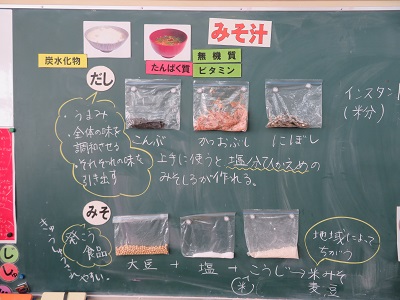 みそ汁
炭水化物
たんぱく質
無機質
ビタミン
だし
・うまみ
・全体の味を
調和させる
・それぞれの味を
引き出す
こんぶ
かつおぶし
にぼし
上手に使うと塩分ひかえめの
みそしるが作れる。
インスタン
(米分)
みそ
発こう
食品
きゅうしゅう
されやすい。
大豆 + 塩 + こうじ→米みそ
米
麦
豆
地域によって
ちがう